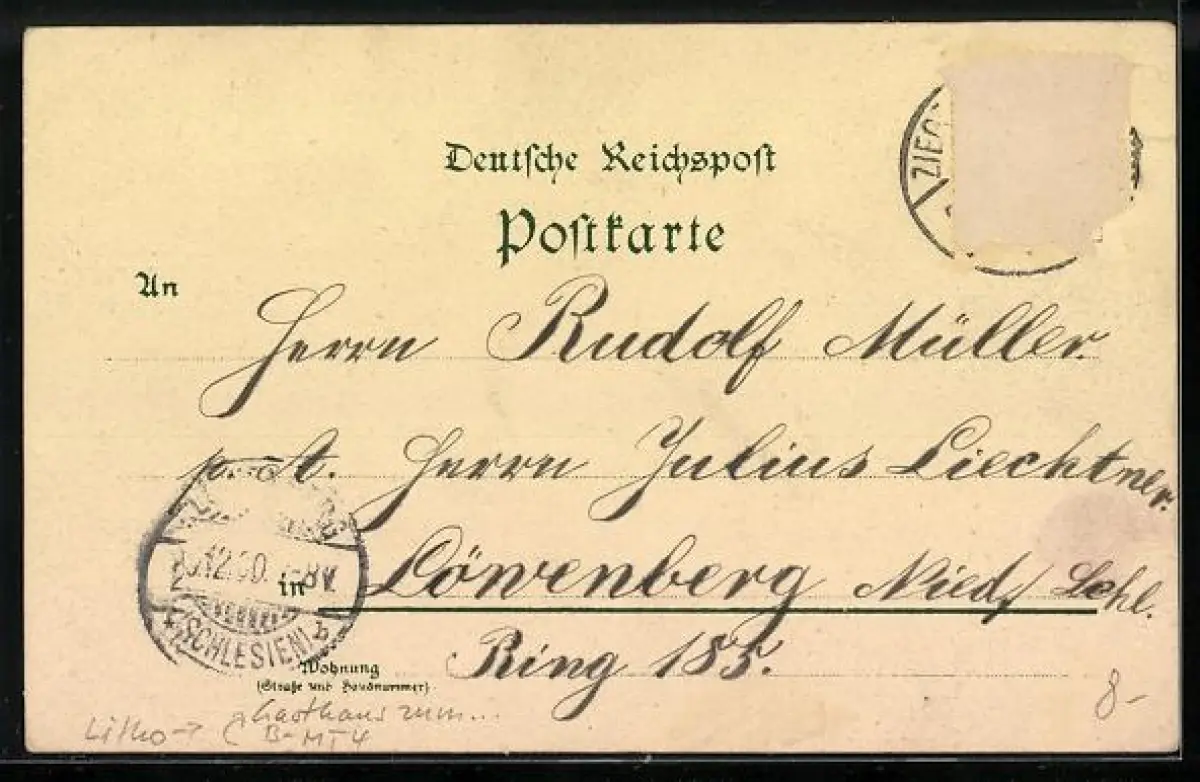 ZIEG
Deutsche Reichspost
Postkarte
An
Herrn Rudolf Müller.
p. Ad. Herrn Julius Liechtner.
in Löwenberg Nied/ Schl.
12.00. 7-8V.
(SCHLESIEN) b
Ring 185.
Wohnung
(Straße und Hausnummer)
Litho → Gasthaus zum...
8-